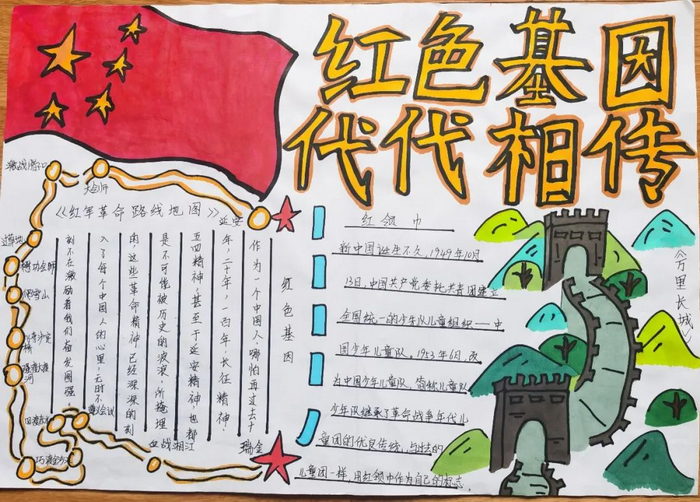 红色基因
代代相传
大会师
《红军革命路线地图》
延安
过草地
爬雪山
遵义会议
血战湘江
瑞金
红色基因
作为一个中国人,哪怕再过去十
年,二十年,一百年,长征精神,
五四精神,甚至于延安精神,也都
是不可能被历史的浪滚,所掩埋
因这些革命精神,已经深深的刻
入了每个中国人的心里,无时不
刻不在激励着我们奋发图强
红领巾
新中国诞生不久,1949年10月
13日,中国共产党委托共青团建立
全国统一的少年队儿童组织——中
国少年儿童队。1953年6月,改
为中国少年儿童队,简称儿童队
少年队继承了革命战争年代儿
童团的优良传统,与过去的
儿童团一样,用红领巾作为自己的标志.
《万里长城》